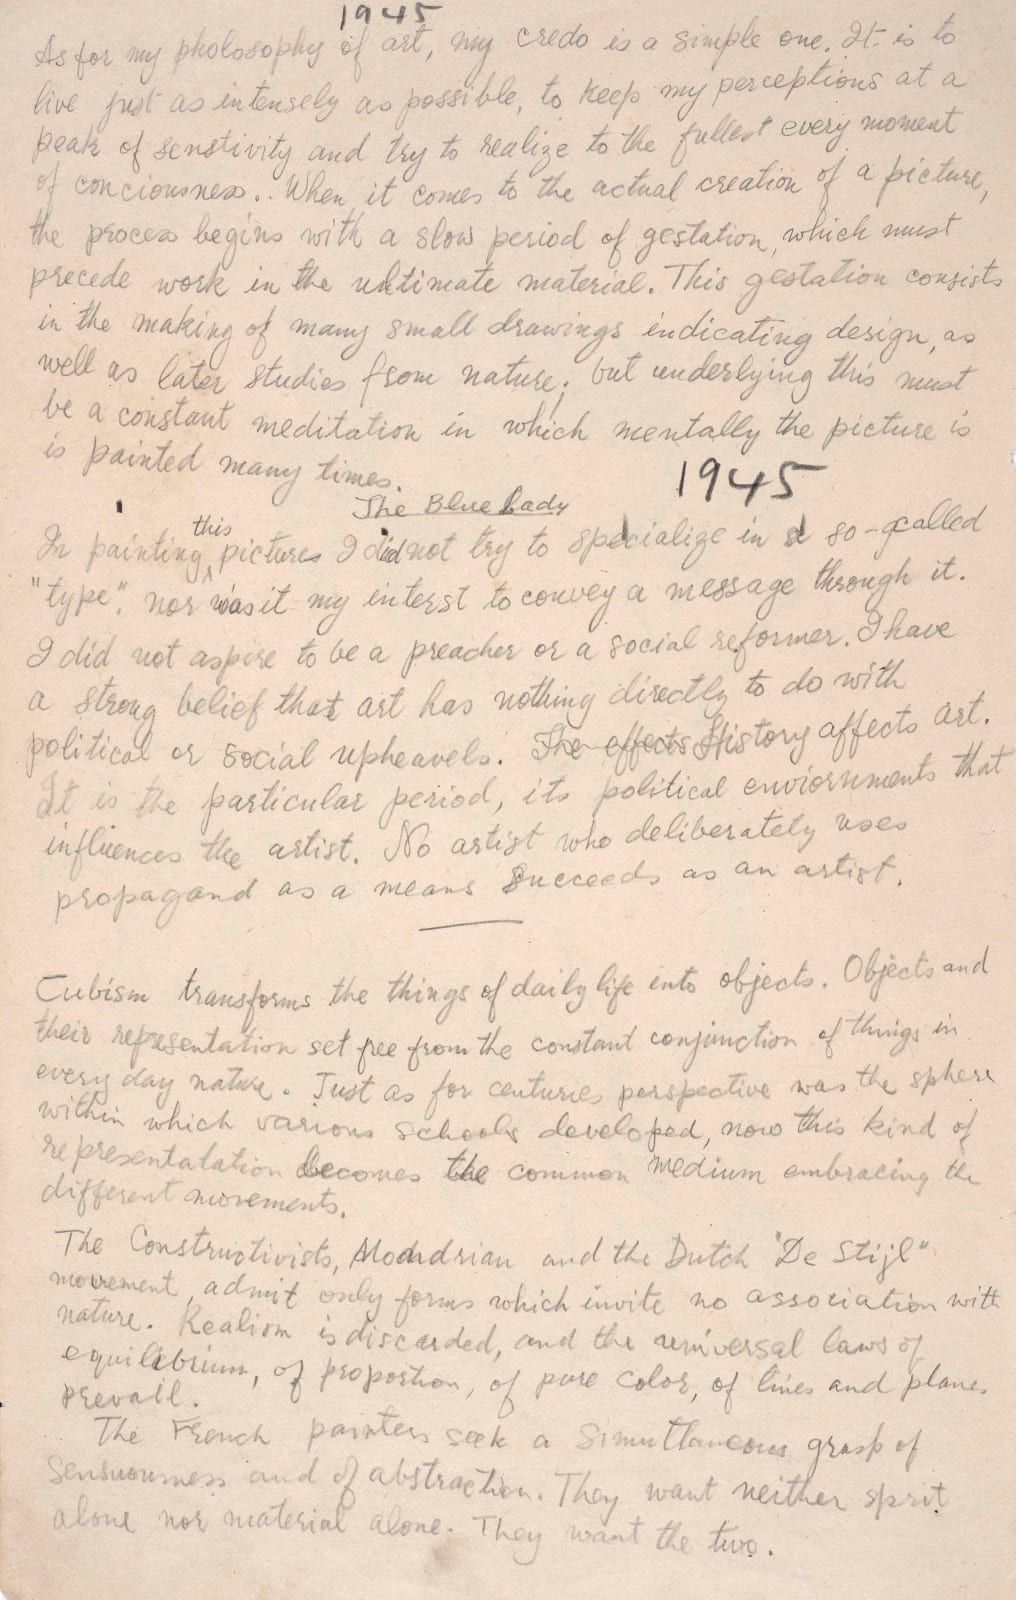 1945
As for my pholosophy of art, my credo is a simple one. It is to
live just as intensely as possible, to keep my perceptions at a
peak of senstivity and try to realize to the fullest every moment
of conciousness.. When it comes to the actual creation of a picture,
the process begins with a slow period of gestation, which must
precede work in the ultimate material. This gestation consists
in the making of many small drawings indicating design, as
well as later studies from nature; but underlying this must
be a constant meditation in which mentally the picture is
is painted many times.
1945
The Blue Lady
In painting this pictures I did not try to specialize in a so-called
"type", nor was it my interst to convey a message through it.
I did not aspire to be a preacher or a social reformer. I have
a strong belief that art has nothing directly to do with
political or social upheavels. The effects History affects art.
It is the particular period, its political enviornments that
influences the artist. No artist who deliberately uses
propagand as a means succeeds as an artist.
Cubism transforms the things of daily life into objects. Objects and
their representation set free from the constant conjunction of things in
every day nature. Just as for centuries perspective was the sphere
within which various schools developed, now this kind of
representatation becomes the common medium embracing the
different movements.
The Constructivists, Mondrian and the Dutch "De Stijl"
movement, admit only forms which invite no association with
nature. Realism is discarded, and the universal laws of
equilibrium, of proportion, of pure color, of lines and planes
prevail.
The French painters seek a simultaneous grasp of
sensuousness and of abstraction. They want neither sprit
alone nor material alone. They want the two.